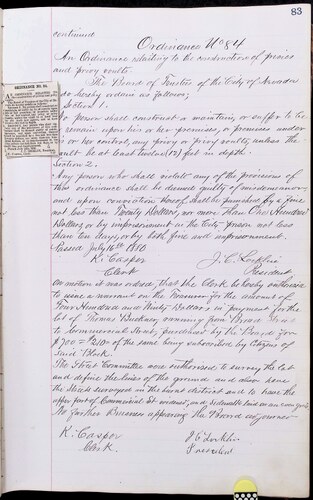 83
continued
Ordinance No 84
An Ordinance relating to the construction of privies
and privy vaults.
The Board of Trustees of the City of
do hereby ordain as follows;
Section 1.
No person shall construct or maintain, or suffer to be
or remain upon his or her premises, or premises under
his or her control, any privy or privy vault, unless the
vault be at least twelve (12) feet in depth.
Section 2.
Any person who shall violate any of the provisions of
this ordinance shall be deemed guilty of misdemeanor,
and upon conviction thereof shall be punished by a fine
not less than Twenty Dollars, nor more than One Hundred
Dollars, or by imprisonment in the City prison not less
than ten days, or by both fine and imprisonment.
Passed July 16th 1880
K. Casper
Clerk
President
On motion it was ordered, that the Clerk be hereby authorized
to issue a warrant on the Treasurer for the amount of
Four Hundred and Ninety Dollars in payment for the
lot of Thomas running from Broad Street
to Commercial Street, purchased by the Board for
$700 = $210 of the same being subscribed by Citizens of
said Block.
The Street Committee were authorized to survey the lot
and define the lines of the ground and also have
the Streets surveyed in the burnt district and to have the
upper part of Commercial St widened, and Sidewalks laid
No further Business appearing the Board adjourned
K. Casper
Clerk.
President
ORDINANCE NO. 84.